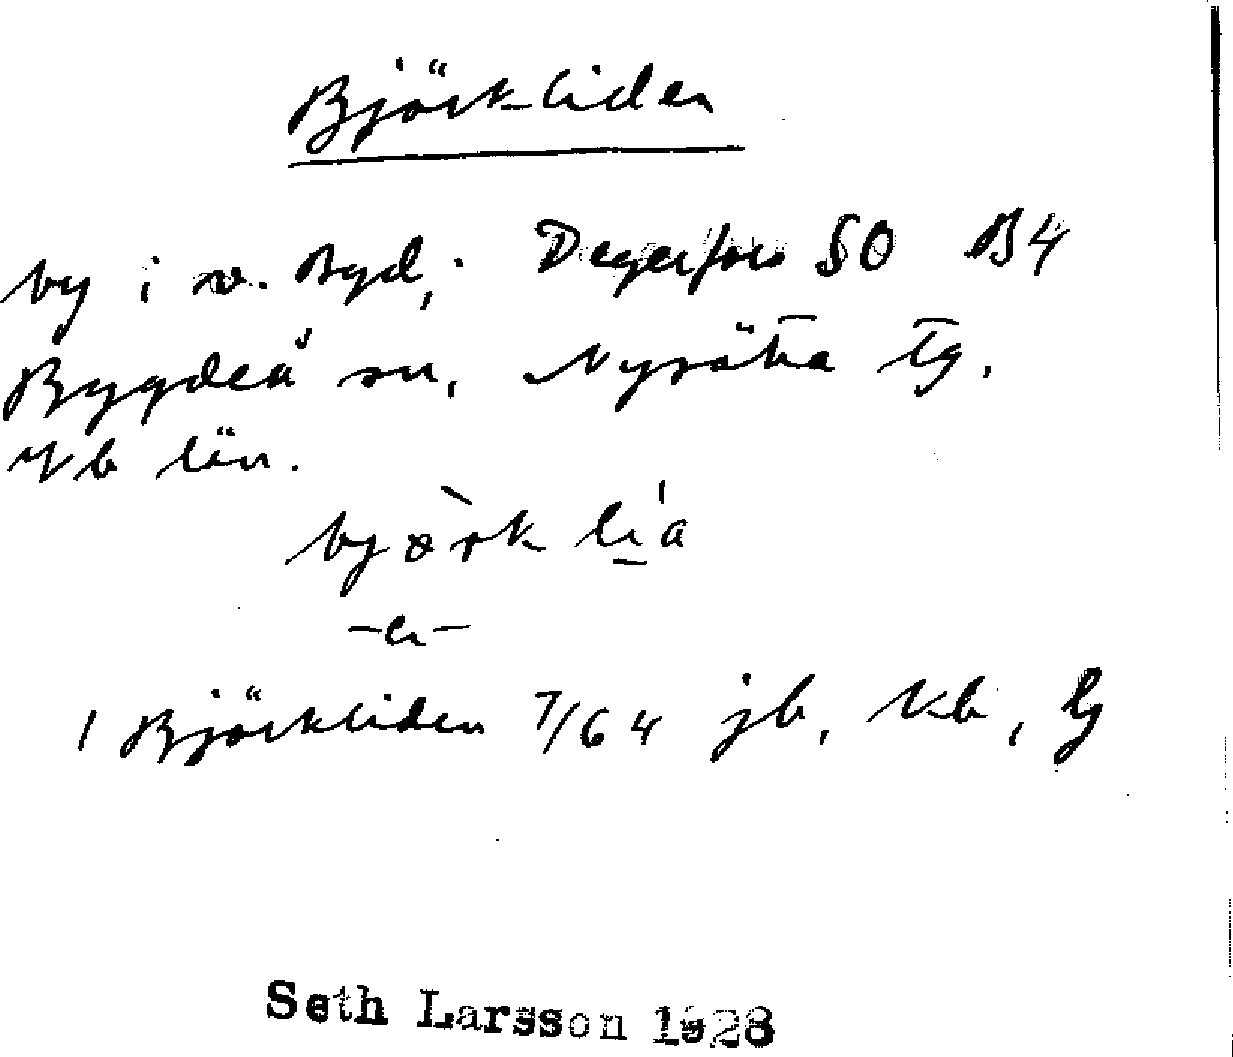 Björkliden
by i v. Bygd, Degerfors SO B4
Bygdeå sn, Nysätra tg.
Vb län.
bjòrk lia
-en-
1 Björkliden 7/64 jb, kb, lg
Seth Larsson 1928